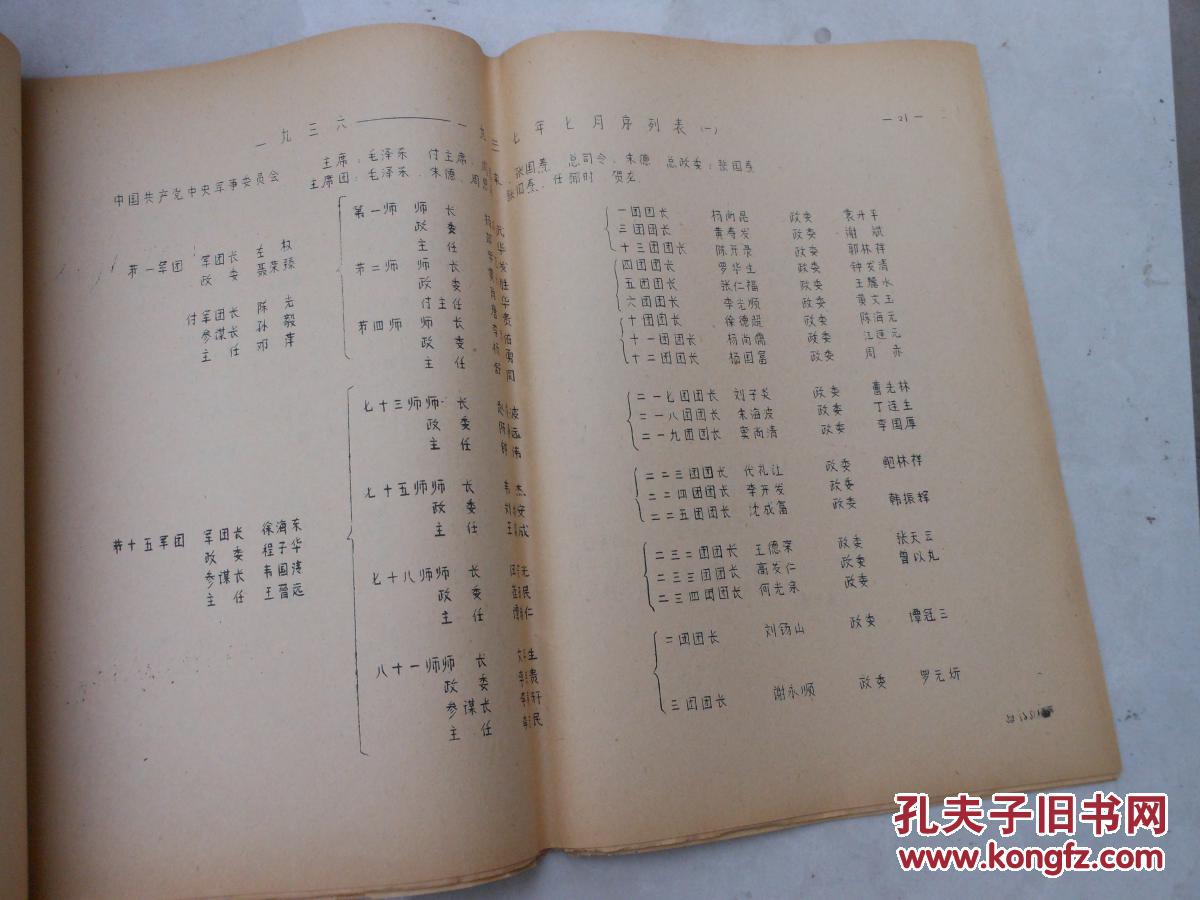 一九三六——一九三七年七月序列表(一) —21—
中国共产党中央军事委员会
主席：毛泽东 付主席： 张国焘 总司令、朱德 总政委：张国焘
主席团：毛泽东、朱德、周 张国焘、任弼时 贺龙
第一军团 军团长 左权
政委 聂荣臻
付军团长 陈光
参谋长 孙毅
主任 邓萍
第一师 师长
政委
主任
第二师 师长
政委
付主任
第四师 师长
政委
主任
一团团长 杨尚昆 政委 袁升平
三团团长 黄寿发 政委 谢斌
十三团团长 陈开录 政委 郭林祥
四团团长 罗华生 政委 钟发清
五团团长 张仁福 政委 王麓水
六团团长 李光顺 政委 黄文玉
十团团长 徐德超 政委 陈海元
十一团团长 杨尚儒 政委 江连元
十二团团长 杨国富 政委 周赤
第十五军团 军团长 徐海东
政委 程子华
参谋长 韦国清
主任 王晋远
七十三师师长
政委
主任
七十五师师长 韦杰
政委
主任
七十八师师长
政委
主任
八十一师师长
政委
参谋长
主任
二一七团团长 刘子炎 政委 曹光林
二一八团团长 朱海波 政委 丁连生
二一九团团长 窦尚清 政委 李国厚
二二三团团长 代礼让 政委 鲍林祥
二二四团团长 李开发 政委
二二五团团长 沈成富 政委 韩振辉
二三二团团长 王德荣 政委 张天云
二三三团团长 高发仁 政委 曾以丸
二三四团团长 何光宗 政委
二团团长 刘钖山 政委 谭冠三
三团团长 谢永顺 政委 罗元炘
孔夫子旧书网
www.kongfz.com